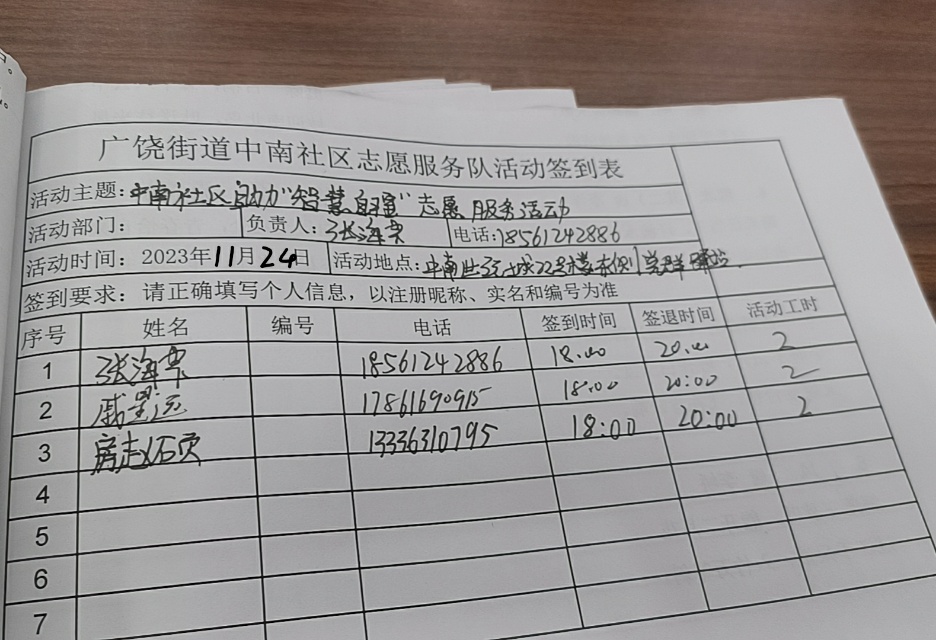 广饶街道中南社区志愿服务队活动签到表
活动主题：中南社区自助力"智慧自理"志愿服务活动
活动部门： 负责人：张海荣 电话：18561242886
活动时间：2023年11月24日 活动地点：中南世纪城22号楼东侧党群驿站
签到要求：请正确填写个人信息，以注册昵称、实名和编号为准
序号 姓名 编号 电话 签到时间 签退时间 活动工时
1 张海荣 18561242886 18:00 20:00 2
2 17861690915 18:00 20:00 2
3 房赵 13336310795 18:00 20:00 2
4
5
6
7